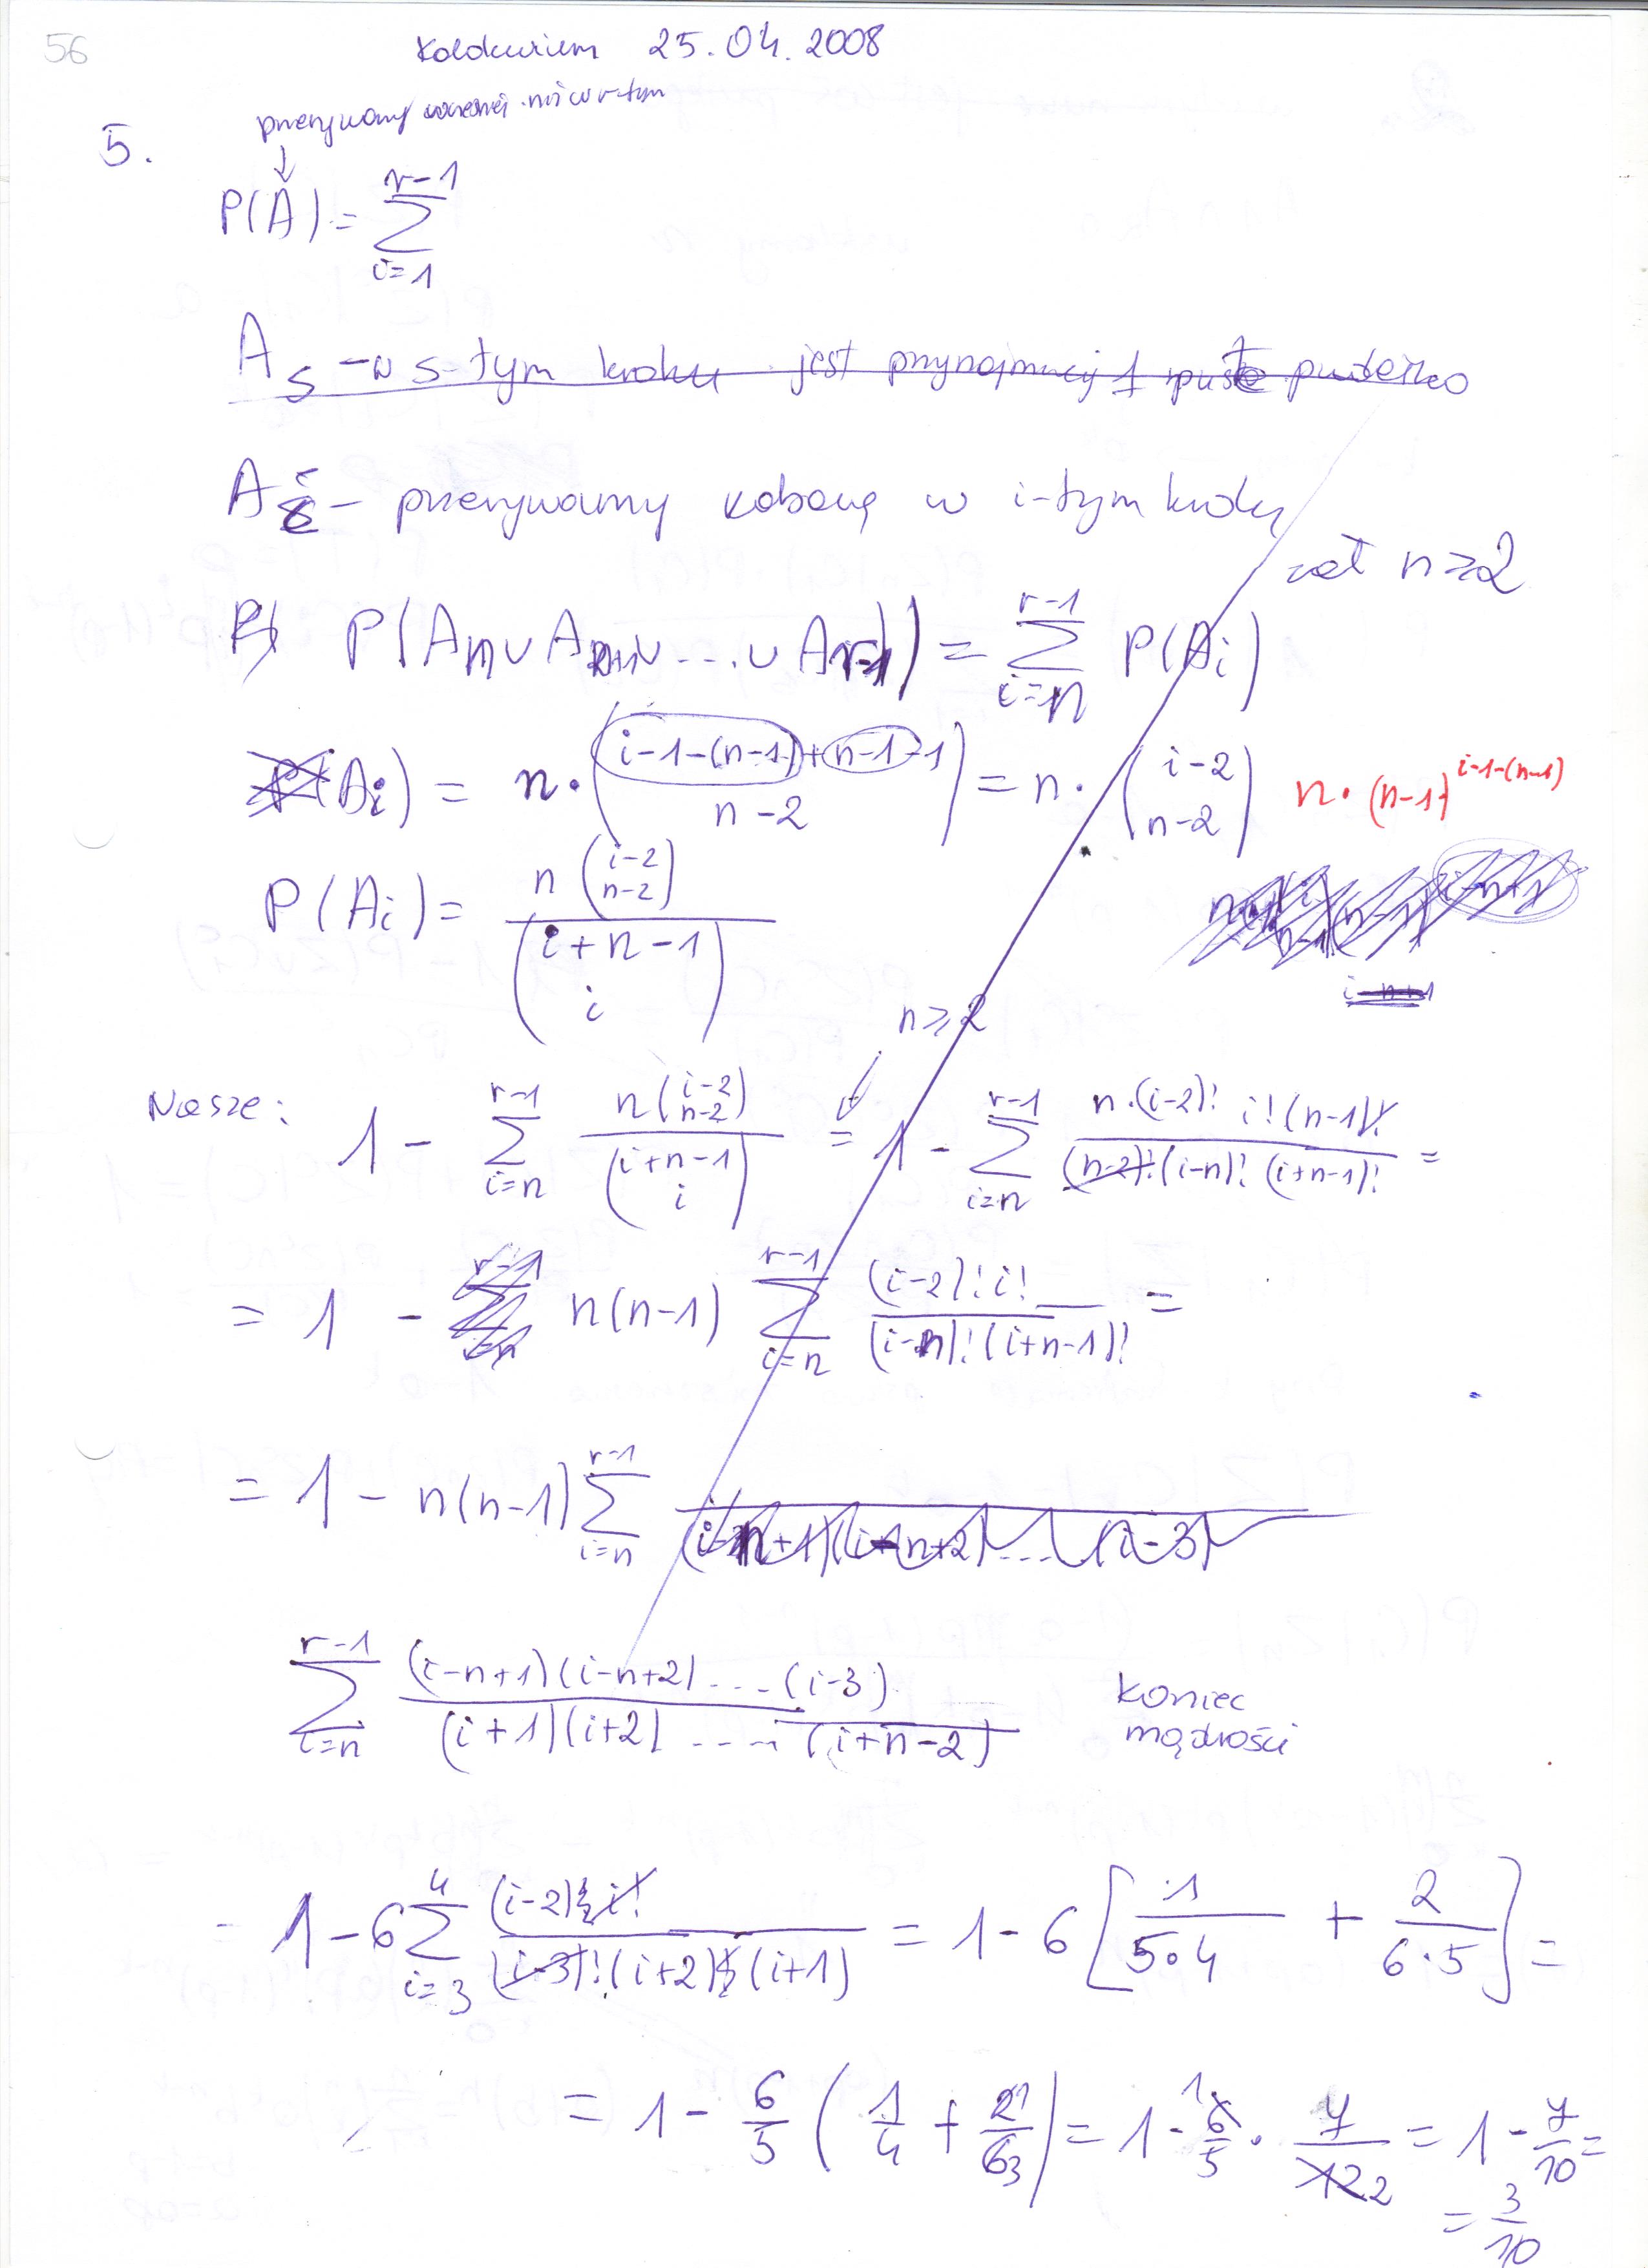 56
Kolokwium 25.04.2008
przerywamy wcześniej niż w r-tym
5.
↓
P(A) = \sum_{i=1}^{r-1}
A_s – w s-tym kroku jest przynajmniej 1 puste pudełko
A_i – przerywamy zabawę w i-tym kroku
zał n ≥ 2
P(A_n ∪ A_{n+1} ∪ ... ∪ A_{r-1}) = \sum_{i=n}^{r-1} P(A_i)
A_i) = n · \binom{i-1-(n-1)+n-1-1}{n-2} = n · \binom{i-2}{n-2} n · (n-1)^{i-1-(n-1)}
P(A_i) = \frac{n \binom{i-2}{n-2}}{\binom{i+n-1}{i}}
n ≥ 2
Nasze: 1 - \sum_{i=n}^{r-1} \frac{n\binom{i-2}{n-2}}{\binom{i+n-1}{i}} = 1 - \sum_{i=n}^{r-1} \frac{n·(i-2)! i! (n-1)!}{(n-2)! (i-n)! (i+n-1)!} =
= 1 - n(n-1) \sum_{i=n}^{r-1} \frac{(i-2)! i!}{(i-n)! (i+n-1)!} =
= 1 - n(n-1) \sum_{i=n}^{r-1} \frac{}{(i-n+1)(i-n+2) ... (i-3)}
\sum_{i=n}^{r-1} \frac{(i-n+1)(i-n+2) .... (i-3)}{(i+1)(i+2) .... (i+n-2)} Koniec
mądrości
= 1 - 6 \sum_{i=3}^{4} \frac{(i-2)! i!}{(i-3)! (i+2)! (i+1)} = 1 - 6 [ \frac{1}{5·4} + \frac{2}{6·5} ] =
= 1 - \frac{6}{5} ( \frac{1}{4} + \frac{2 1}{6 3} ) = 1 - \frac{6 1}{5} · \frac{7}{12 2} = 1 - \frac{7}{10} =
= \frac{3}{10}